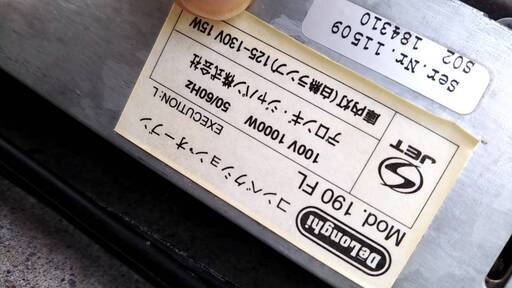 DeLonghi
Mod. 190 FL
コンベクション・オーブン
EXECUTION: L
100V 1000W 50/60Hz
デロンギ・ジャパン株式会社
庫内灯(白熱ランプ) 125-130V 15W
JET
ser. Nr. 11509
S02 184310